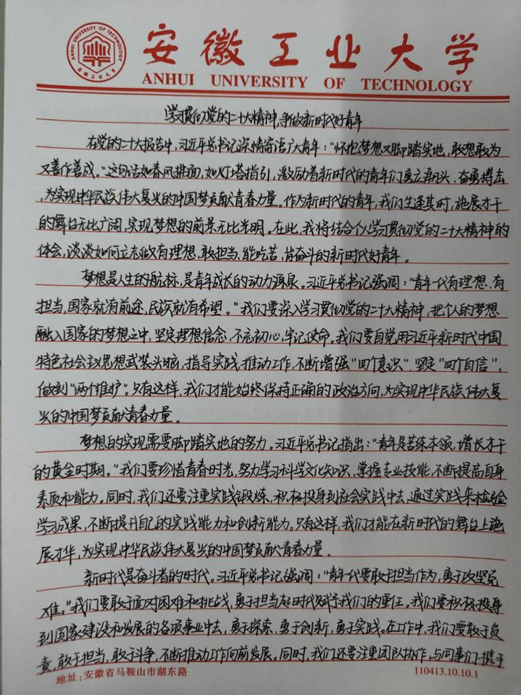 安徽工业大学
ANHUI UNIVERSITY OF TECHNOLOGY
学习贯彻党的二十大精神,争做新时代好青年
在党的二十大报告中,习近平总书记深情寄语广大青年:“怀抱梦想又脚踏实地,敢想敢为
又善作善成。”这句话如春风拂面,如灯塔指引,激励着新时代的青年们勇立潮头、奋勇搏击,
为实现中华民族伟大复兴的中国梦贡献青春力量。作为新时代的青年,我们生逢其时,施展才干
的舞台无比广阔,实现梦想的前景无比光明。在此,我将结合个人学习贯彻党的二十大精神的
体会,谈谈如何立志做有理想、敢担当、能吃苦、肯奋斗的新时代好青年。
梦想是人生的航标,是青年成长的动力源泉。习近平总书记强调:“青年一代有理想、有
担当,国家就有前途,民族就有希望。”我们要深入学习贯彻党的二十大精神,把个人的梦想
融入国家的梦想之中,坚定理想信念,不忘初心,牢记使命。我们要自觉用习近平新时代中国
特色社会主义思想武装头脑,指导实践,推动工作,不断增强“四个意识”、坚定“四个自信”,
做到“两个维护”。只有这样,我们才能始终保持正确的政治方向,为实现中华民族伟大复
兴的中国梦贡献青春力量。
梦想的实现需要脚踏实地的努力。习近平总书记指出:“青年是苦练本领、增长才干
的黄金时期。”我们要珍惜青春时光,努力学习科学文化知识,掌握专业技能,不断提高自身
素质和能力。同时,我们还要注重实践锻炼,积极投身到社会实践中去,通过实践来检验
学习成果,不断提升自己的实践能力和创新能力。只有这样,我们才能在新时代的舞台上施
展才华,为实现中华民族伟大复兴的中国梦贡献青春力量。
新时代是奋斗者的时代。习近平总书记强调:“青年一代要敢于担当作为,勇于攻坚克
难。”我们要敢于面对困难和挑战,勇于担当起时代赋予我们的重任。我们要积极投身
到国家建设和发展的各项事业中去,勇于探索,勇于创新,勇于实践。在工作中,我们要敢于负
责,敢于担当,敢于斗争,不断推动工作向前发展。同时,我们还要注重团队协作,与同事们携手
地址:安徽省马鞍山市湖东路
110413.10.10.1